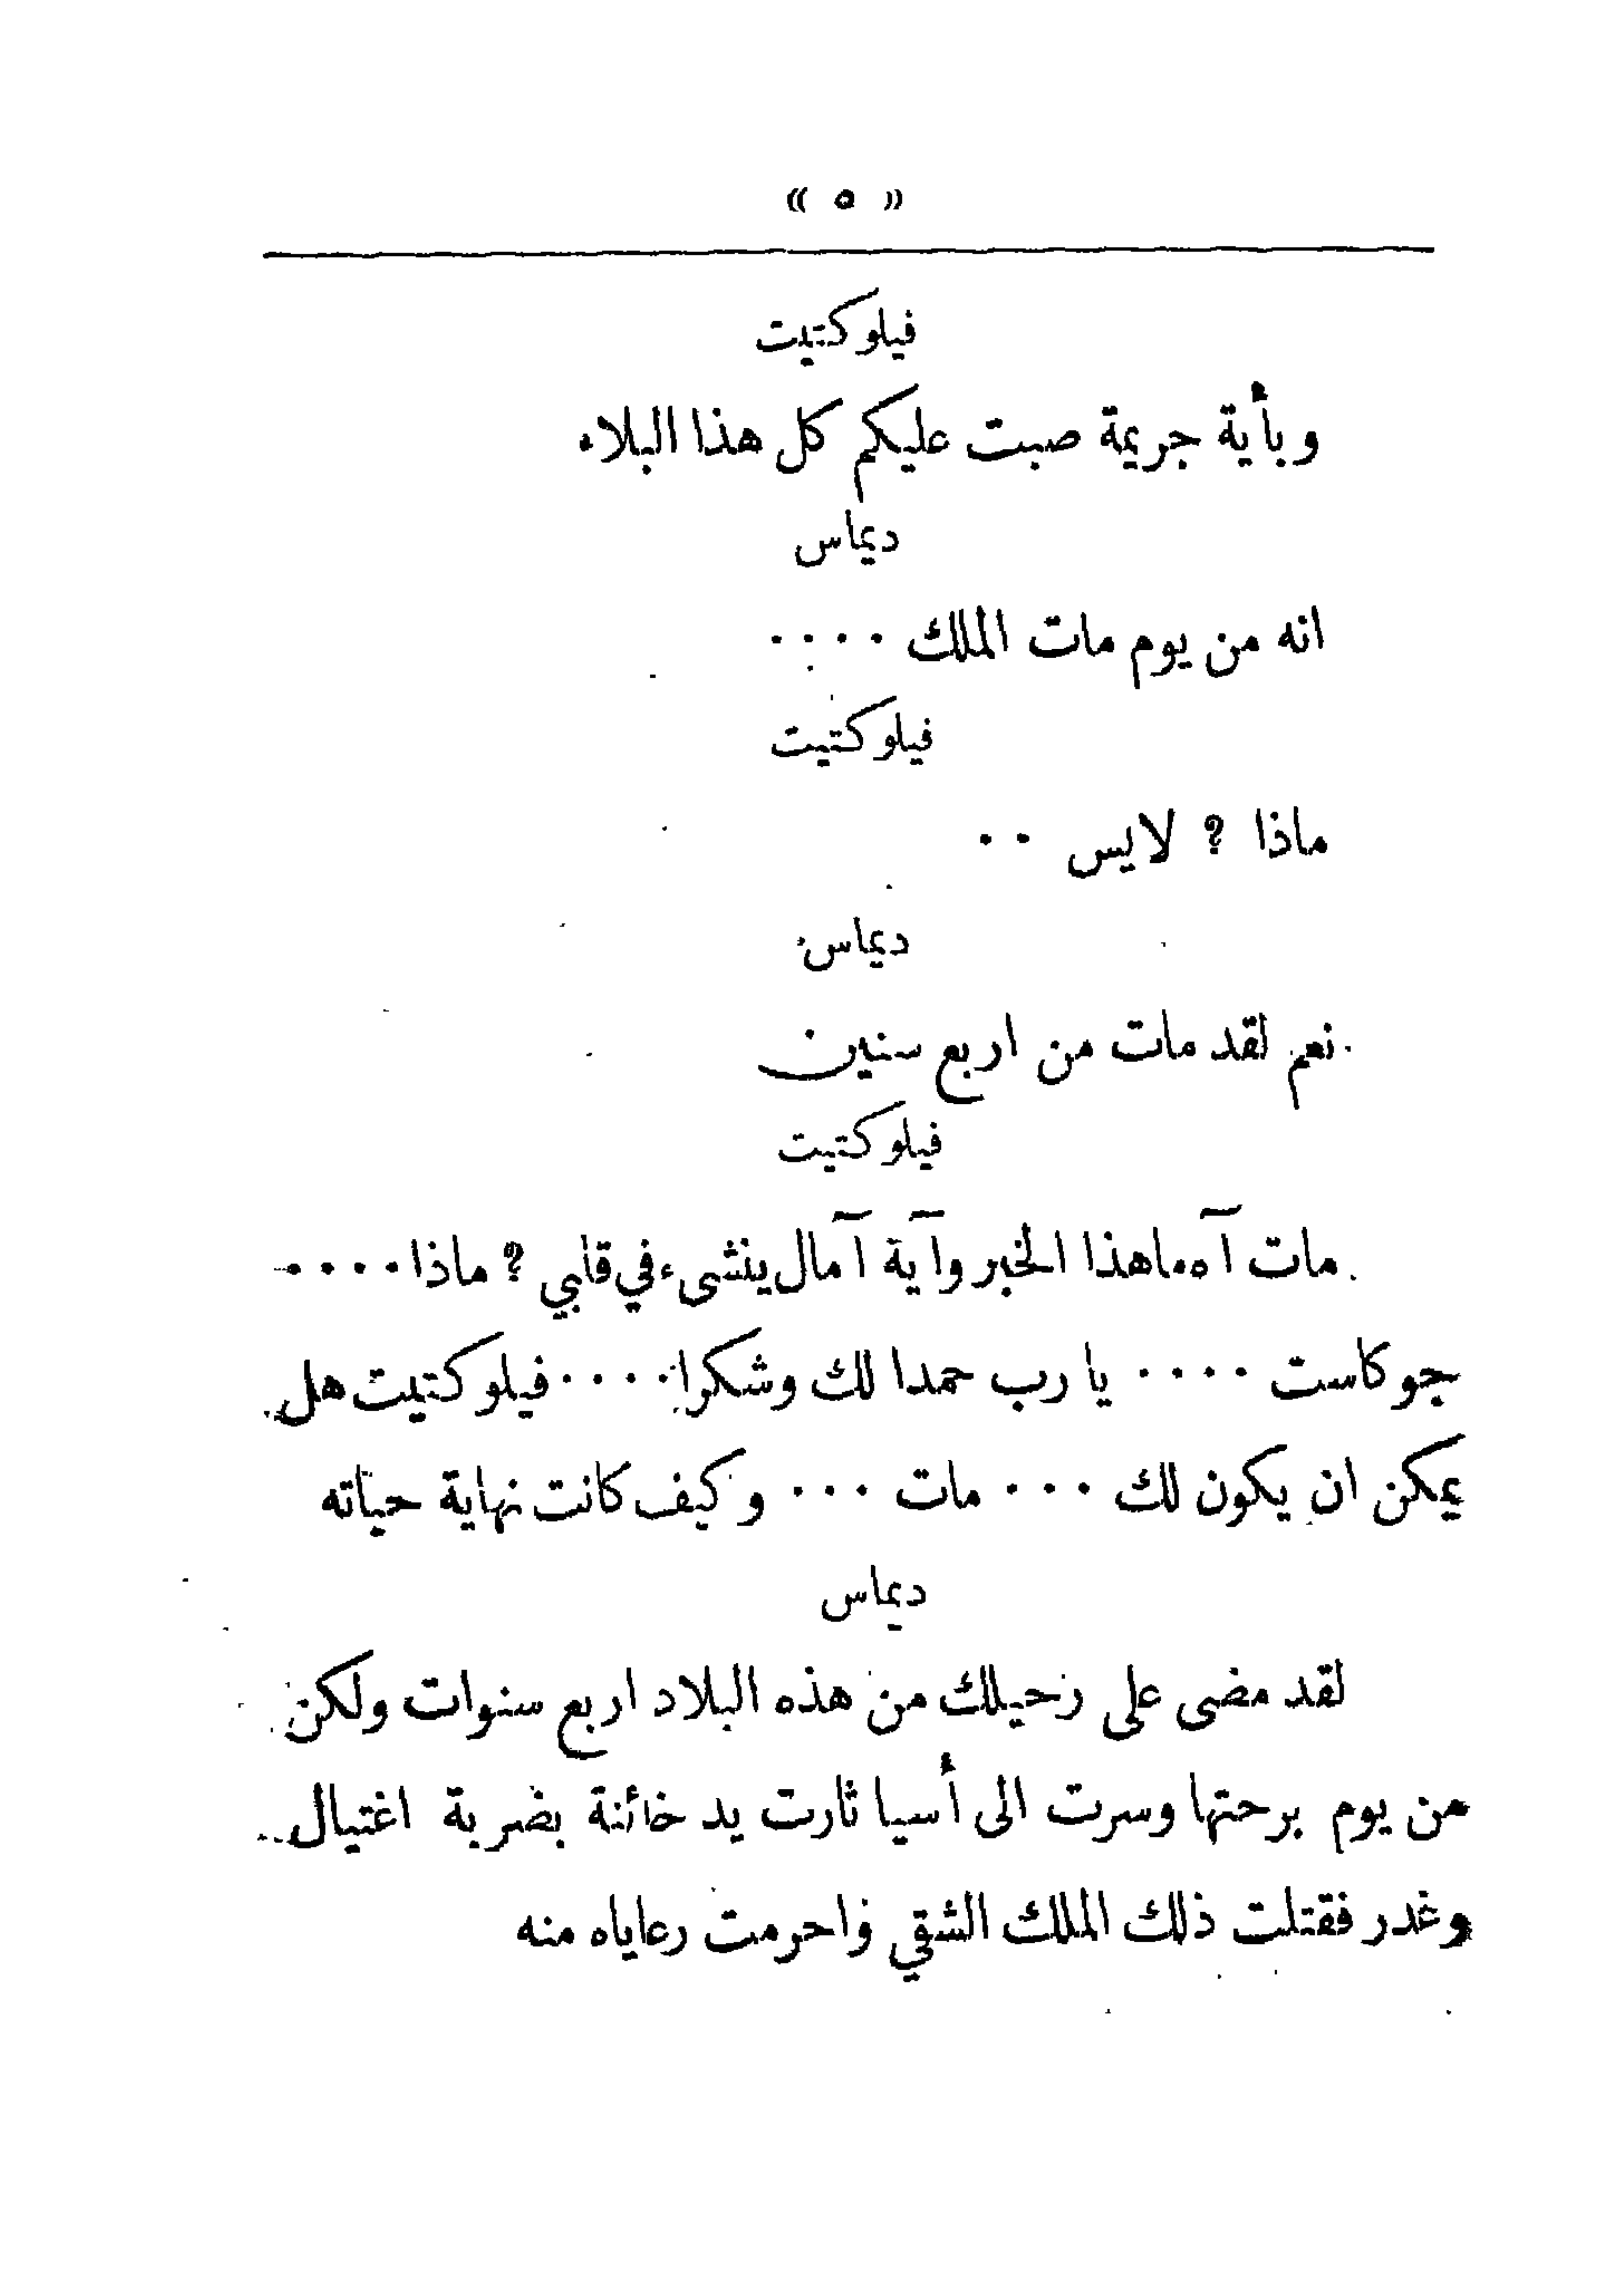 « ٥ »
فيلوكتيت
وبأية جريمة صبت عليكم كل هذا البلاء
ديماس
انه من يوم مات الملك ....
فيلوكتيت
ماذا ? لايس ..
ديماس
نعم لقد مات من اربع سنين
فيلوكتيت
مات آه ماهذا الخبر وآية آمال ينشىء في قلبي ? ماذا ....
جوكاست .... يا رب حمدا لك وشكرا .... فيلوكتيت هل
يمكن ان يكون لك ... مات ... وكيف كانت نهاية حياته
ديماس
لقد مضى على رحيلك من هذه البلاد اربع سنوات ولكن
من يوم برحتها وسرت الى أسيا ثارت يد خائنة بضربة اغتيال
وغدر فقتلت ذلك الملك الشقي واحرمت رعاياه منه